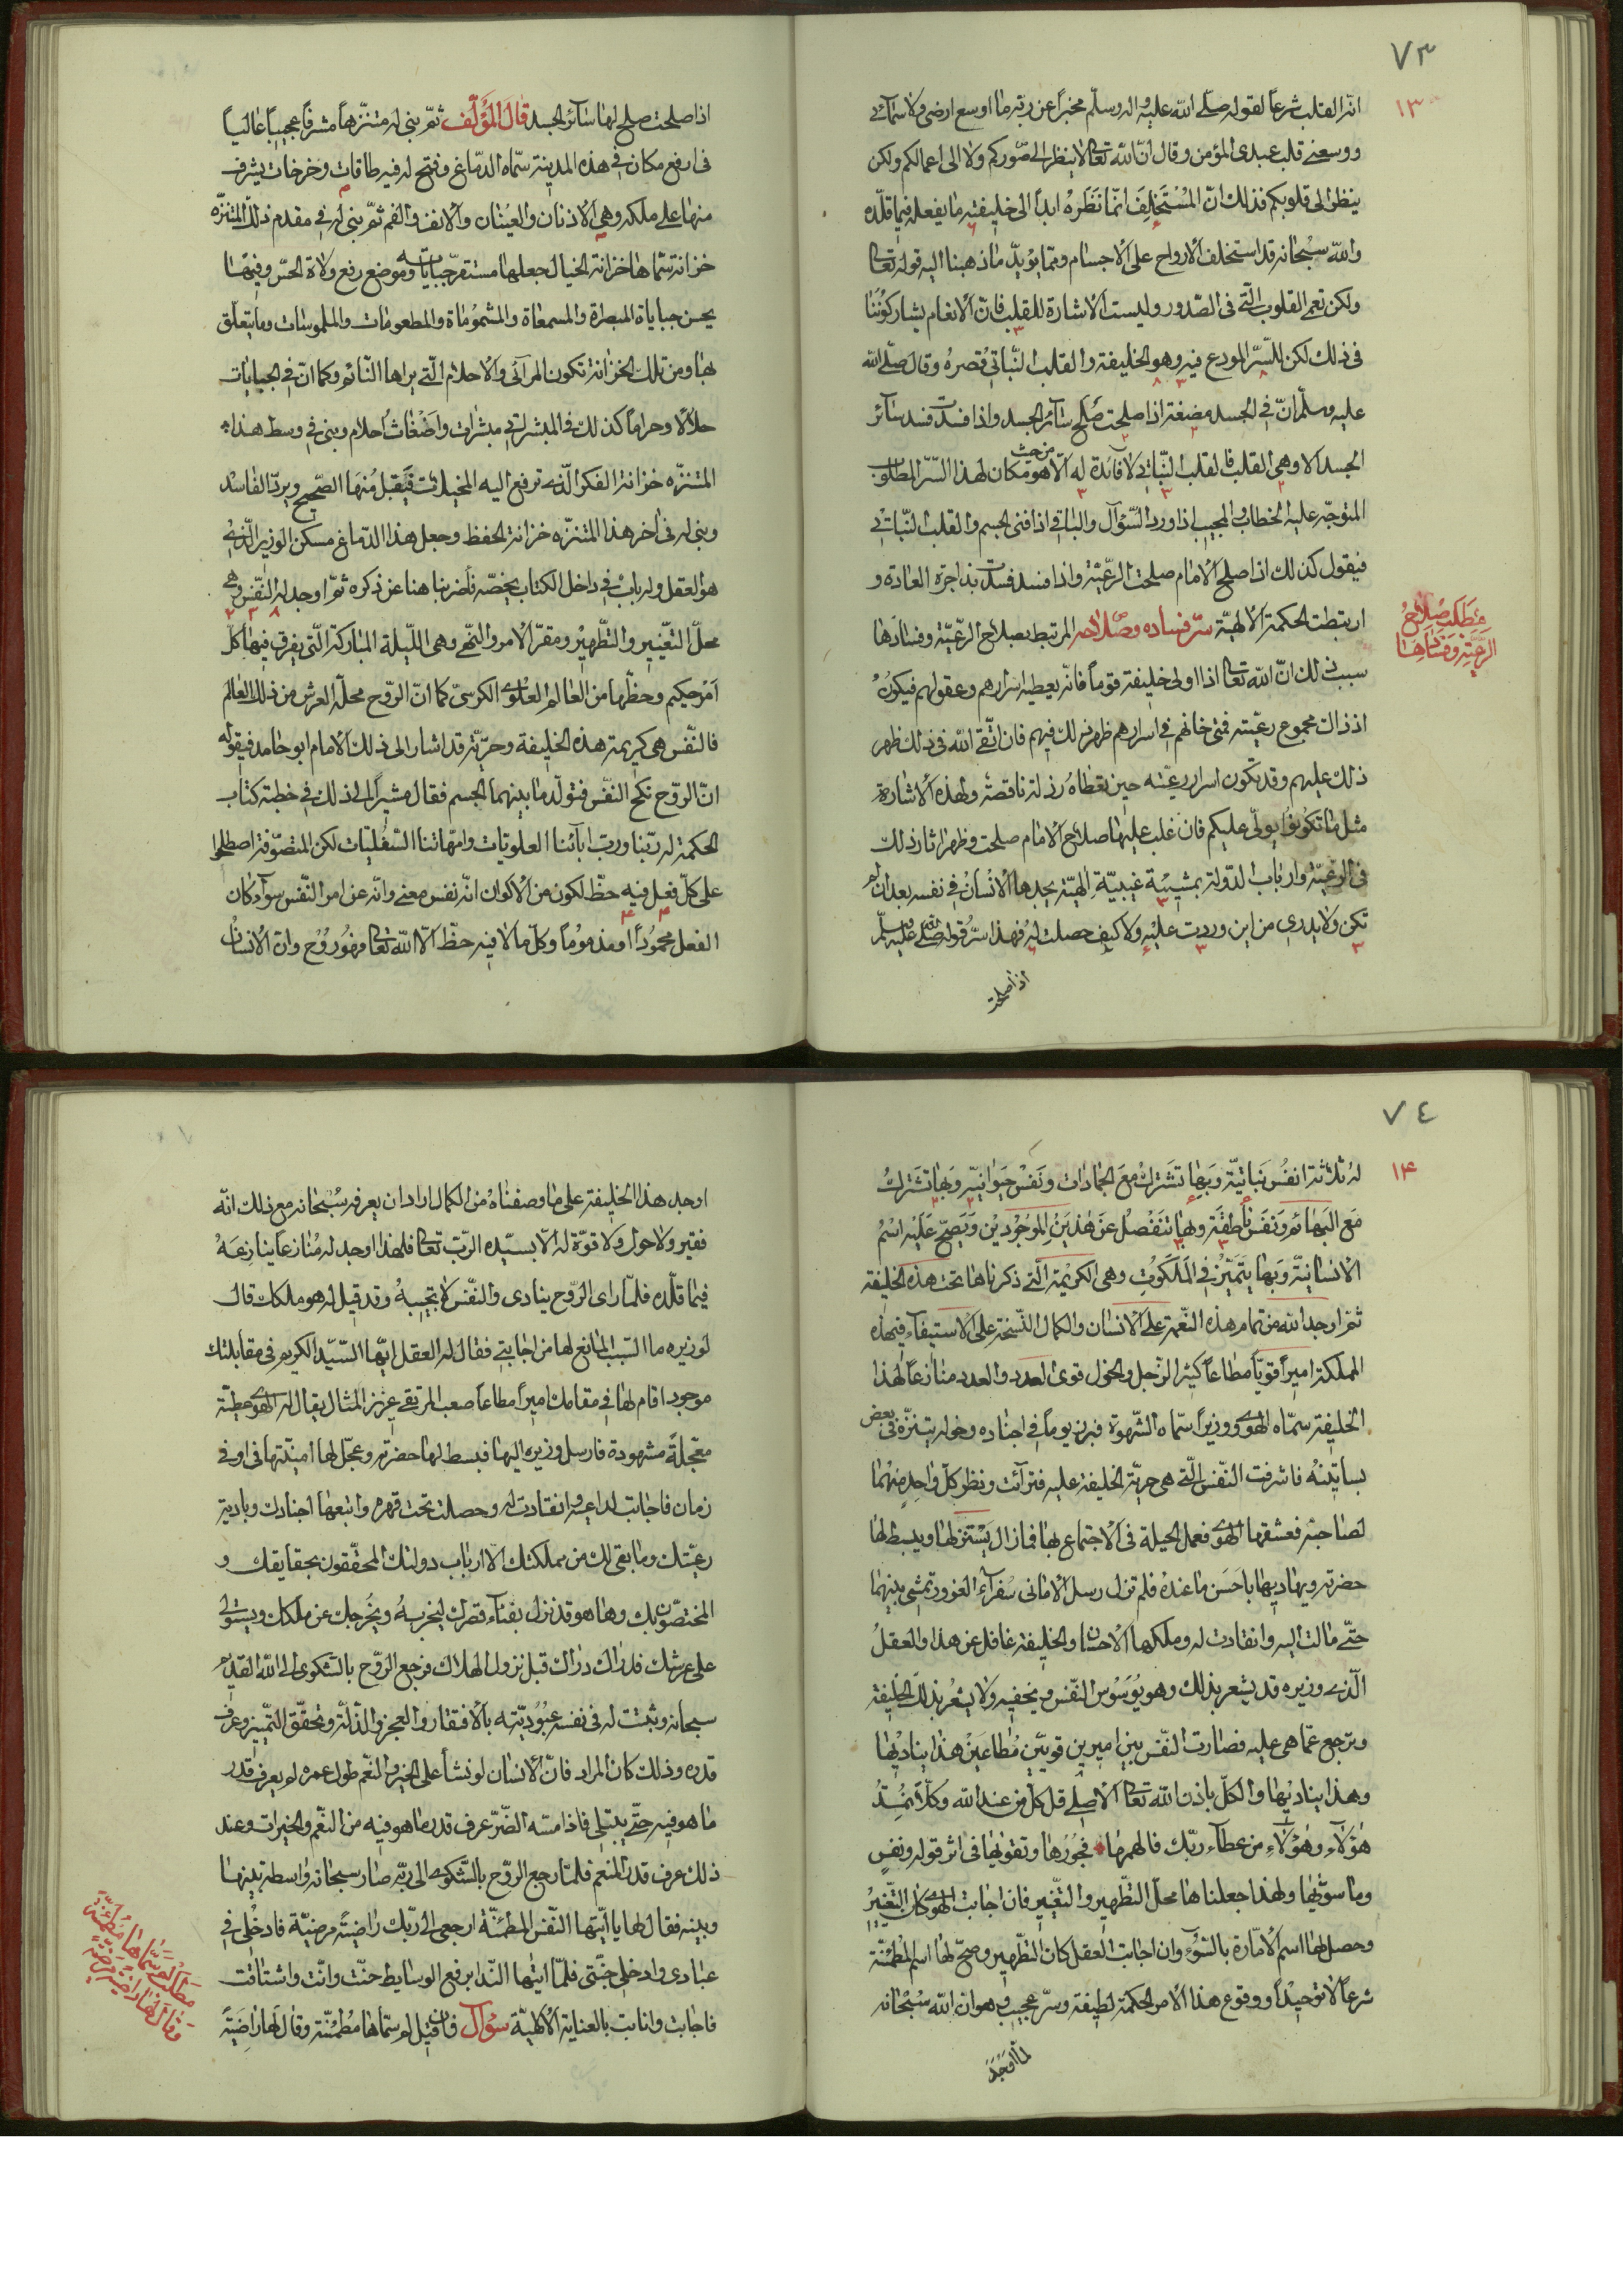 ٧٣
١٣
انّه القلب شرعاً لقوله صلّى الله عليه واله وسلّم مخبراً عن ربّه ما اوسع ارضى ولا سمائى
ووسعنى قلب عبدى المؤمن وقال انّ الله تعالى لا ينظر الى صوركم ولا الى اعمالكم ولكن
ينظر الى قلوبكم فذلك انّ المُسْتَخلِفَ انّما نَظَرهُ ابداً الى خليفته ما يفعله فيما قلّده
والله سبحانه قد استخلف الارواح على الاجسام وممّا يؤيّد ما ذهبنا اليه قوله تعالى
ولكن تعمى القلوب الّتى فى الصّدور وليست الاشارة للقلب فانّ الانعام يشاركوننا
فى ذلك لكن للسّرّ المودع فيه وهو الخليفة والقلب النّباتى قصره وقال صلّى الله
عليه وسلّم انّ فى الجسد مضغة اذا صلحت صلح سائر الجسد واذا فسدت فسد سائر
الجسد الا وهى القلب فالقلب النّباتى لا فائدة له الّا هو من حيث مكان لهذا السّرّ المطلوب
المتوجّه عليه الخطاب والمجيب اذا ورد السّؤال والباقى اذا فنى الجسم والقلب النّباتى
فيقول كذلك اذا صلح الامام صلحت الرّعيّة واذا فسد فسدت بذا جرت العادة و
ارتبطت الحكمة الالهيّة سرّ فساده وصلاحه المرتبط بصلاح الرّعيّة وفسادها
مَطلَب صلاحُ
الرَّعيّةِ وَفسَادِهَا
سبب ذلك انّ الله تعالى اذا اولى خليفة قوماً فانّه يعطيه اسرارهم وعقولهم فيكون
اذ ذاك مجموع رعيّته فمتى خانهم فى اسرارهم ظهر ذلك فيهم فان اتّقى الله فى ذلك ظهر
ذلك عليهم وقد تكون اسرار رعيّته حين تعطاه رذلة ناقصة ولهذه الاشارة
مثل ما تكونوا يولّى عليكم فان غلب عليها صلاح الامام صلحت وظهر اثار ذلك
فى الرّعيّة وارباب الدّولة بمشيّة غيبيّة الهيّة يجدها الانسان فى نفسه بعد ان لم
تكن ولا يدرى من اين وردت عليه ولا كيف حصلت له فهذا سرّ قوله صلّى الله عليه وسلّم
اذا صلحت
اذا صلحت صلح لها سائر الجسد قال المؤلّف ثمّ بنى له متنزّهاً مشرفاً عجيباً عالياً
فى ارفع مكان فى هذه المدينة سمّاه الدّماغ وفتح له فيه طاقات وخرخات يشرف
منها على ملكه وهى الاذنان والعينان والانف والفم ثمّ بنى له فى مقدم ذلك المتنزّه
خزانة سمّاها خزانة الخيال جعلها مستقرّ جباياته وموضع رفع ولاة الحسّ وفيها
يحسن جباياة المبصرة والمسمعاة والمشموماة والمطعومات والملموسات وما يتعلّق
بها ومن تلك الخزانة تكون المرآئى والاحلام الّتى يراها النّائم وكما انّ فى الجبايات
حلالاً وحراماً كذلك فى المبشراتى مبشرات واضغاث احلام وبنى فى وسط هذا
المتنزّه خزانة الفكر الّذى ترفع اليه المخيلات فيقبل منها الصّحيح ويردّ الفاسد
وبنى له فى اخر هذا المتنزّه خزانة الحفظ وجعل هذا الدّماغ مسكن الوزير الّذى
هو العقل وله باب فى داخل الكتاب يخصّه فاضربنا هنا عن ذكره ثمّ اوجد له النّفس وهى
محلّ التّغيير والتّطهير ومقرّ الامر والنّهى وهى اللّيلة المباركة الّتى يفرق فيها كلّ
اَمْر حكيم وحظّها من العالم العلوى الكرسىّ كما انّ الرّوح محلّه العرش من ذلك العالم
فالنّفس هى كريمة هذه الخليفة وحرّيّة قد اشار الى ذلك الامام ابو حامد فيقوله
انّ الرّوح نكح النّفس فتولّد ما بينهما الجسم فقال مشيراً الى ذلك فى خطبة كتاب
الحكمة له ربّنا وربّ ابائنا العلويّات وامّهاتنا السّفليّات لكن المتصوّفة اصطلحوا
على كلّ فعل فيه حظّ لكون من الاكوان انّه نفس معنى وانّه عن امر النّفس سوآء كان
الفعل محموداً او مذموماً وكلّ ما لا فيه حظّ الّا الله تعالى فهو روح وانّ الانسان
٧٤
١٤
لهُ ثلاثة انفُس نَباتيّة وبها تَشتَركُ مَعَ الجمادات ونَفْس حَيَوانيّة وبها تشتركُ
مَع البَهائم ونَفس ناطقة وبها تَنفَصلُ عَنْ هذَينِ الموجُودَينِ ويَصحّ عَليه اسْمُ
الانسانيّة وبها يتميّز فى المَلَكُوتِ وهى الكريمة الّتى ذكرناها تحت هذه الخليفة
ثمّ اوجد الله من تمام هذه النّعمة على الانسان والكمال النّسخة على الاستيفآء فى هذه
المملكة اميراً قويّاً مطاعاً كثير الرّجل والخول قوى العدد والعدد منازعاً لهذا
الخليفة سمّاه الهوى ووزيراً سمّاه الشّهوة فبرز يوماً فى اجناده وخوله يتنزّه فى بعض
بساتينه فاشرفت النّفس الّتى هى حريّة الخليفة عليه فترآئت ونظر كلّ واحد منهما
لصاحبه فعشقها الهوى فعمل الحيلة فى الاجتماع بها فما زال يستنزلها ويبسط لها
حضرته ويهاديها باحسن ما عنده فلم تزل رسل الامانى سفرآء الغرور تمشى بينهما
حتّى مالت اليه وانقادت له وملكها الاحسان والخليفة غافل عن هذا والعقل
الّذى وزيره قد يشعر بذلك وهو يُوَسْوس النّفس ويخفيه ولا يشعر بذلك الخليفة
وترجع عمّا هى عليه فصارت النّفس بين اميرين قويّين مُطاعَين هذا يناديها
وهذا يناديها والكلّ باذن الله تعالى الاصلى قل كلّ من عند الله وكلّاً نُمِدُّ
هؤلآء وهؤلآء من عطآء ربّك فالهمها فجُورها وتقويها فى اثر قوله ونفس
وما سوّيها ولهذا جعلناها محلّ التّطهير والتّغيير فان اجابت الهوى كان التّغيير
وحصل لها اسم الامّارة بالسّوء وان اجابت العقل كان التّطهير وصحّ لها اسم المطمئنّة
شرعاً لا توحيداً ووقوع هذا الامر لحكمة لطيفة وسرّ عجيب وهو ان الله سُبْحانه
لمّا اَوجَدَ
اوجد هذا الخليفة على ما وصفناه من الكمال اراد ان يعرفه سُبحانه مع ذلك انّه
فقير ولا حول ولا قوّة له الّا بسيّده الرّبّ تعالى فلهذا اوجد له مُنازعاً ينازعَهُ
فيما قلّده فلمّا راى الرّوح ينادى والنّفس لا تجيبه وقد قيل له هو ملكك قال
لوزيره ما السّبب المانع لها من اجابتى فقال له العقل ايّها السّيّد الكريم فى مقابلتك
موجود اقام لها فى مقامك اميراً مطاعاً صعب المرتقى عزيز المثال يقال له الهوى عطيّته
معجّلة مشهودة فارسل وزيره اليها فبسط لها حضرته وعجّل لها امنيّتها فى اوفى
زمان فاجابت لداعيه وانقادت له وحصلت تحت قهره واتبعها اجنادك وبادية
رعيّتك وما بقى لك من مملكتك الّا ارباب دولتك المحقّقون بحقايقك و
المختصّون بك وها هو قد نزل بفناء قصرك ليخربه ويخرجك عن ملكك ويستولى
على عرشك فدراك دراك قبل نزول الهلاك فرجع الرّوح بالشّكوى الى الله القديم
سبحانه وثبتت له فى نفسه عبُوديّته بالافتقار والعجز والذّلّة وتحقّق التّمييز وعرف
قدره وذلك كان المراد فانّ الانسان لو نشأ على الخير والنّعم طول عمره لم يعرف قدر
ما هو فيه حتّى يبتلى فاذا مسّه الضّرّ عرف قدر ما هو فيه من النّعم والخيرات وعند
ذلك عرف قدر المنعم فلمّا رجع الرّوح بالشّكوى الى ربّه صار سبحانه واسطة بينها
وبينه فقال لها يا ايّتها النّفس المطمئنّة ارجعى الى ربّك راضيةً مرضيّة فادخلى فى
عبادى وادخلى جنّتى فلمّا ايتها النّدا برفع الوسايط حنّت وانّت واشتاقت
فاجابت وانابت بالعناية الالهيّة سؤال فان قيل لم سمّاها مُطمئنّة وقال لها راضيةً
مَطلَب لِمَ سمّاها مُطمَئنّة
وقال لها راضيَة مرضيّة